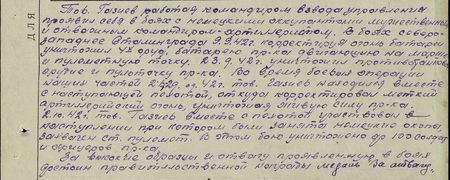 Тов. Газиев работая командиром взвода управления
проявил себя в боях с немецкими оккупантами мужественным
и отважным командиром-артиллеристом. В боях северо-
западнее Сталинграда 9.9.42г. корректируя огонь батареи
уничтожил батарею пр-ка двигающую на марше
и пулеметную точку. 23.9.42г. уничтожил противотанковое
орудие и пулеточку пр-ка. Во время боевых операции
наших частей 42г. тов. Газиев находился вместе
с наступающей пехотой, откуда корректировал меткий
артиллерийский огонь, уничтожая живую силу пр-ка.
2.10.42г. тов. Газиев вместе с пехотой участвовал в
наступлении при котором были заняты немецкие окопы,
захвачен ст. пулемет. В этом бою уничтожено до 100 солдат
и офицеров пр-ка.
За высокие образцы и отвагу проявленную в боях
достоин правительственной награды медаль "За отвагу".
ДЛЯ